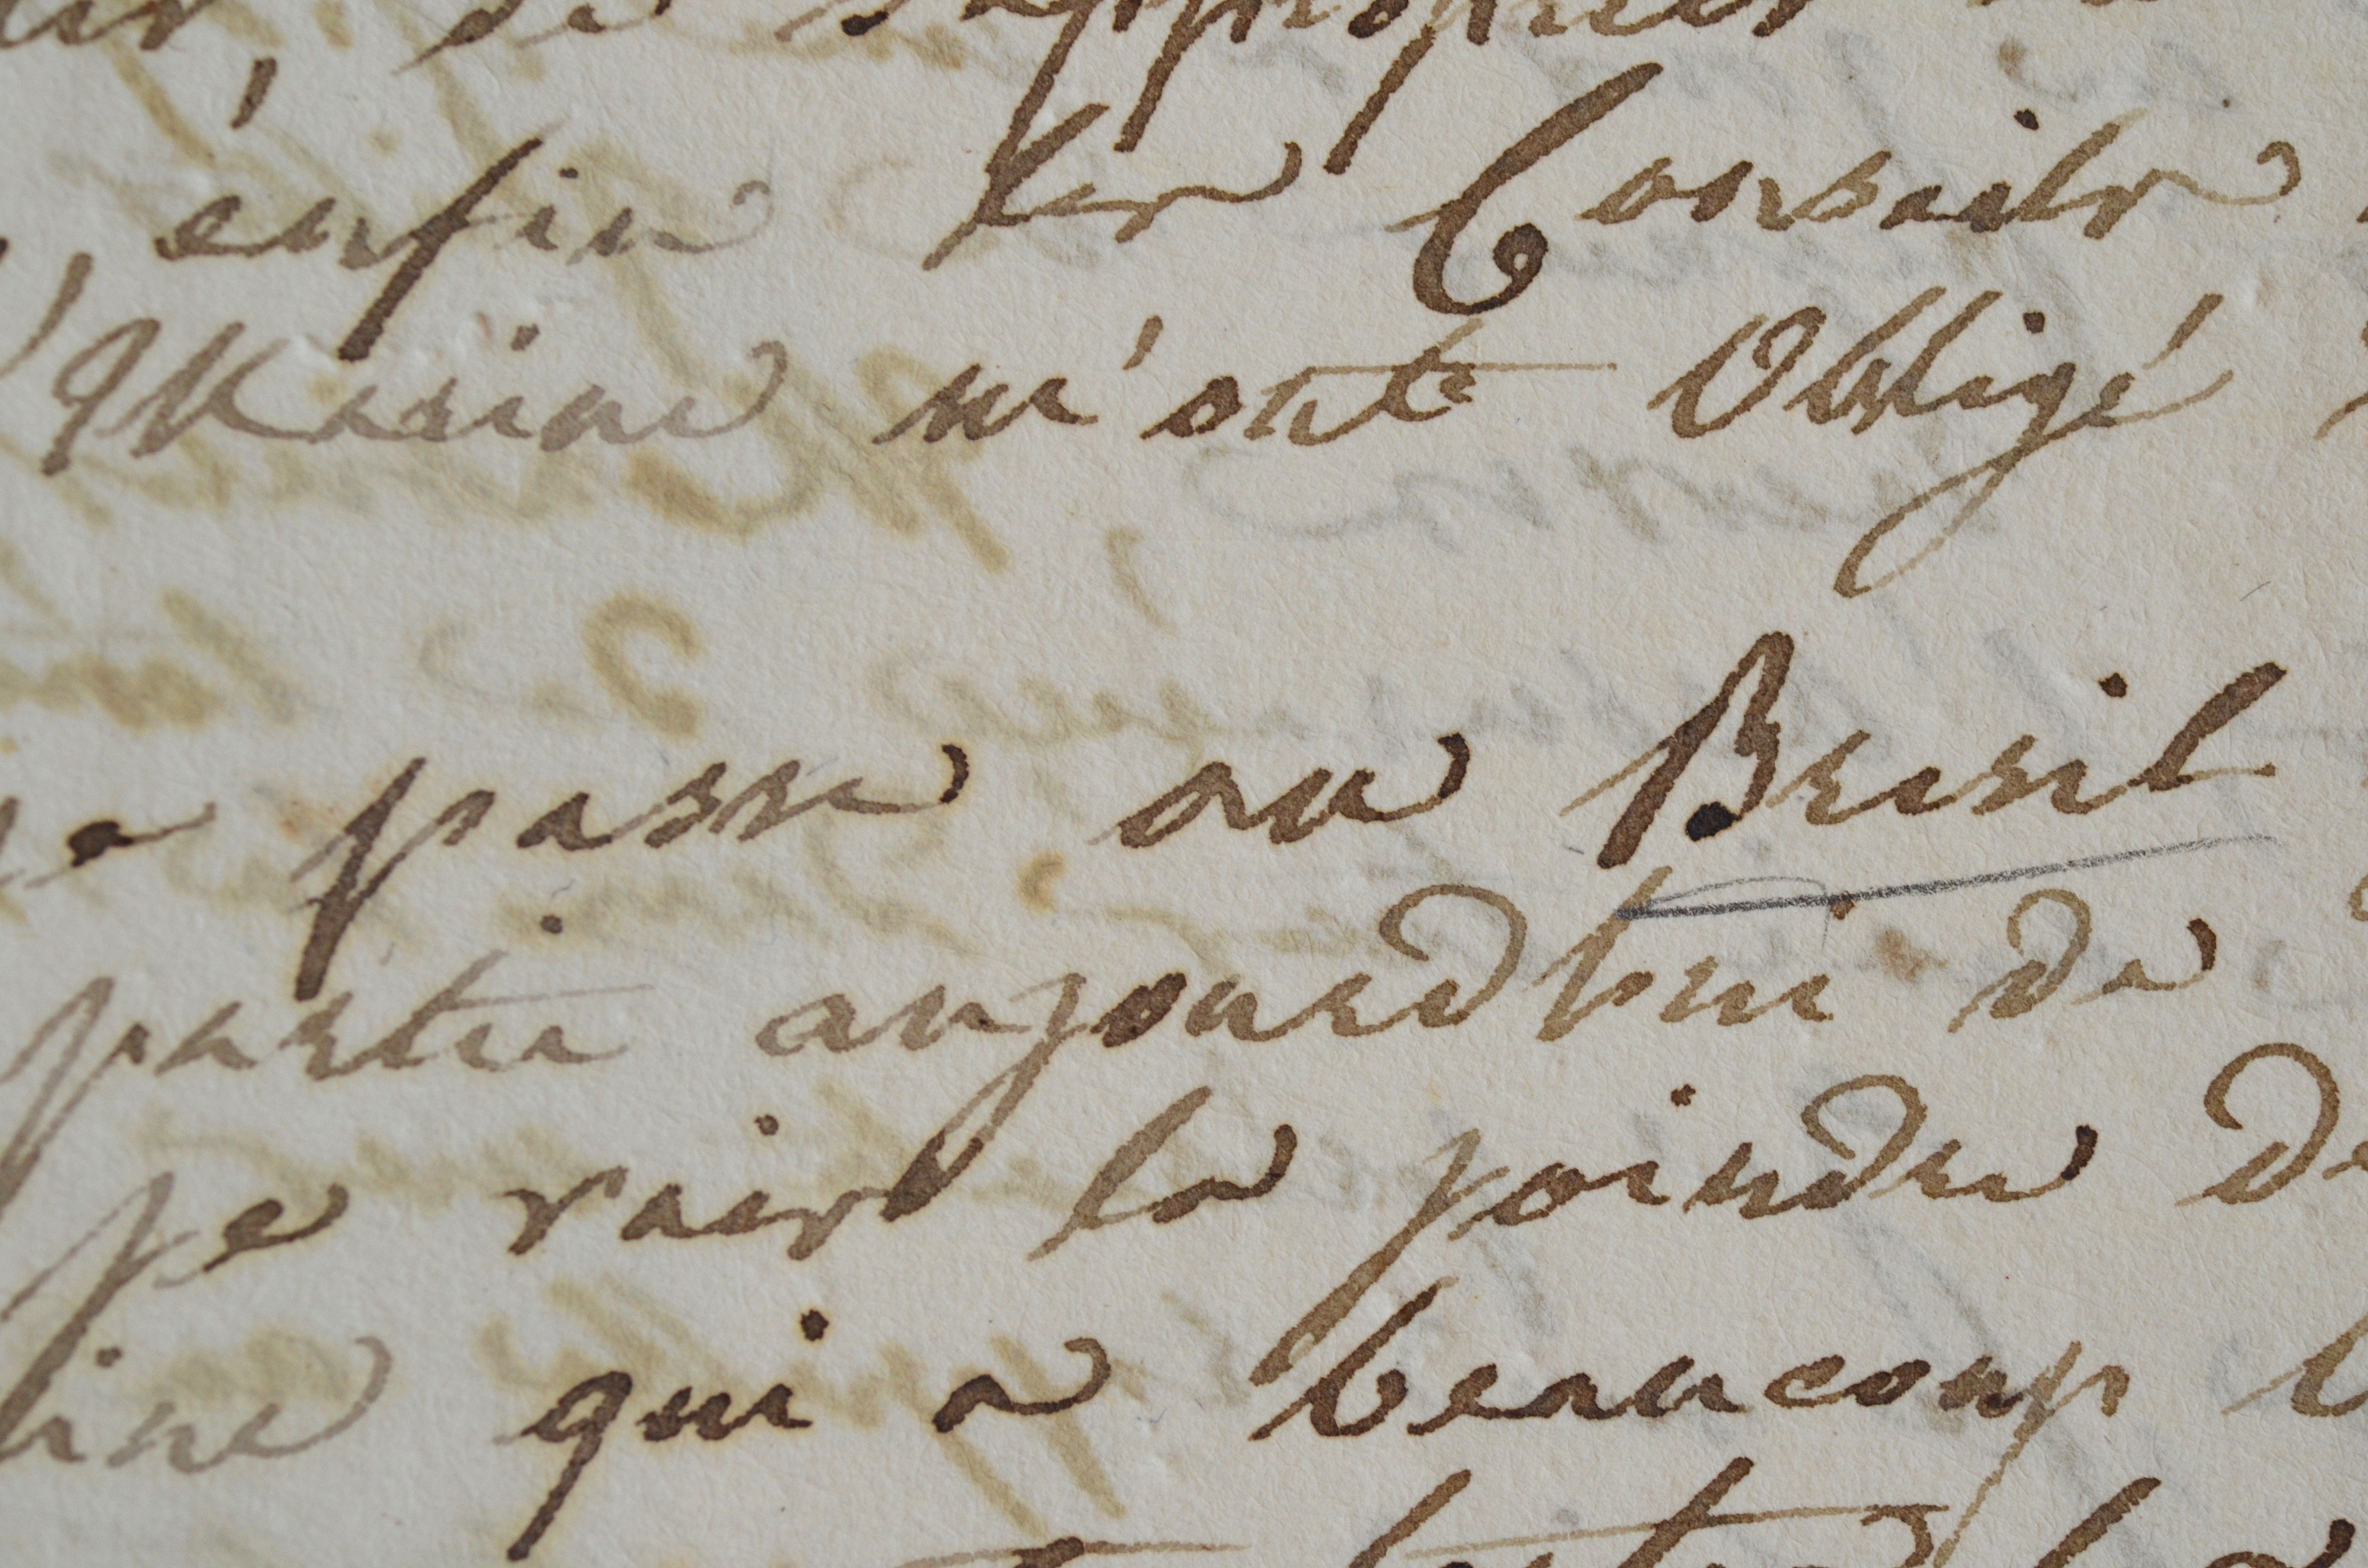 de s'approprier
enfin les Conseils
Marine m'ont Obligé
passe au Bresil
partie aujourdhui de
Je vais la joindre de
qui a beaucoup